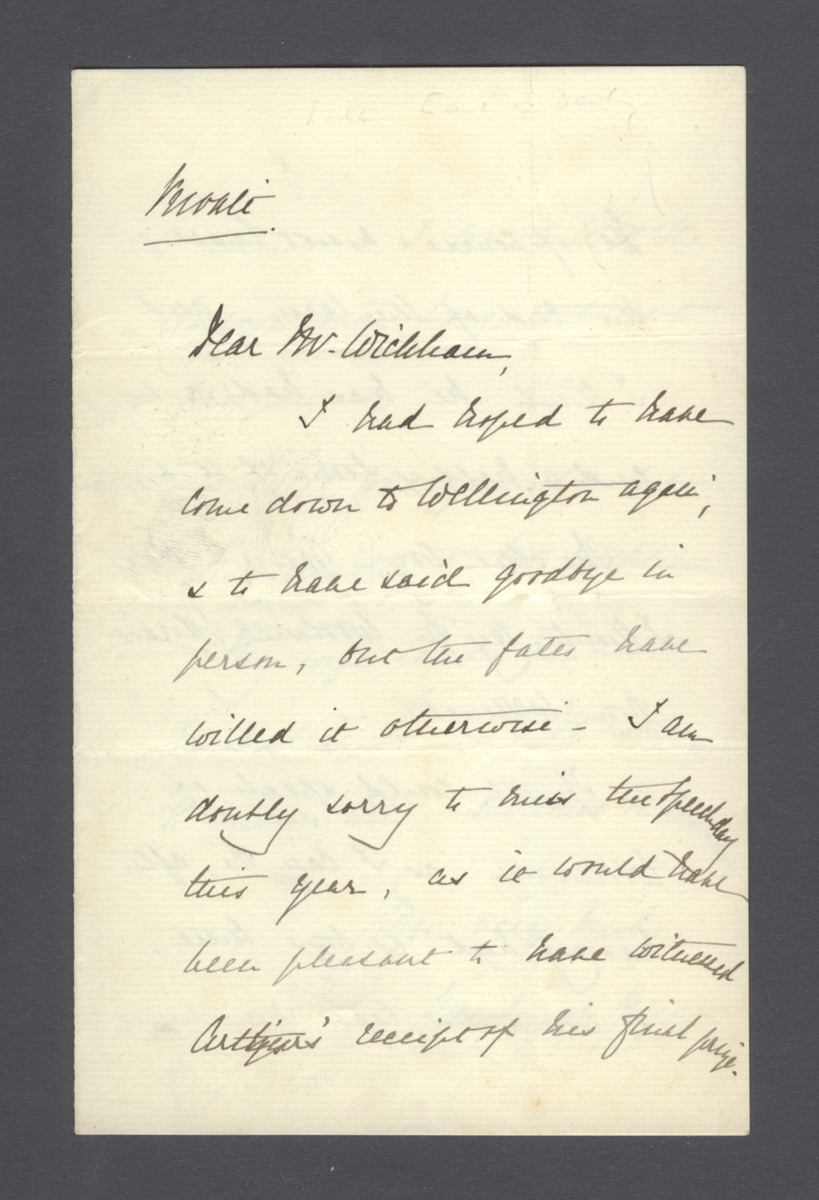 Private
Dear Mr. Wickham,
I had hoped to have
come down to Wellington again,
& to have said goodbye in
person, but the fates have
willed it otherwise - I am
doubly sorry to miss the Speechday
this year, as it would have
been pleasant to have witnessed
Arthur's receipt of his final prize.